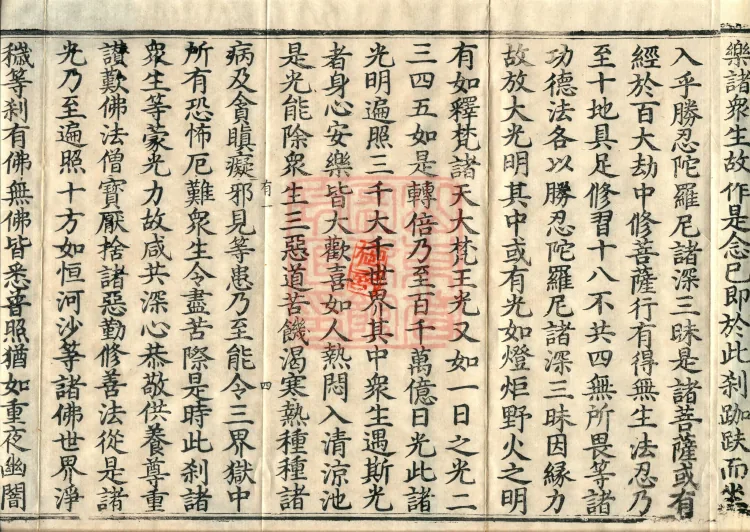 樂諸衆生故作是念已即於此刹跏趺而坐
入乎勝忍陀羅尼諸深三昧是諸菩薩或有
經於百大劫中修菩薩行有得無生法忍乃
至十地具足修習十八不共四無所畏等諸
功德法各以勝忍陀羅尼諸深三昧因緣力
故放大光明其中或有光如燈炬野火之明
有如釋梵諸天大梵王光又如一日之光二
三四五如是轉倍乃至百千萬億日光此諸
光明遍照三千大千世界其中衆生遇斯光
者身心安樂皆大歡喜如人熱悶入清涼池
是光能除衆生三惡道苦饑渴寒熱種種諸
有一
四
病及貪瞋癡邪見等患乃至能令三界獄中
所有恐怖厄難衆生令盡苦際是時此刹諸
衆生等蒙光力故咸共深心恭敬供養尊重
讃歎佛法僧寶厭捨諸惡勤修善法從是諸
光乃至遍照十方如恒河沙等諸佛世界淨
穢等刹有佛無佛皆悉普照猶如重夜幽闇